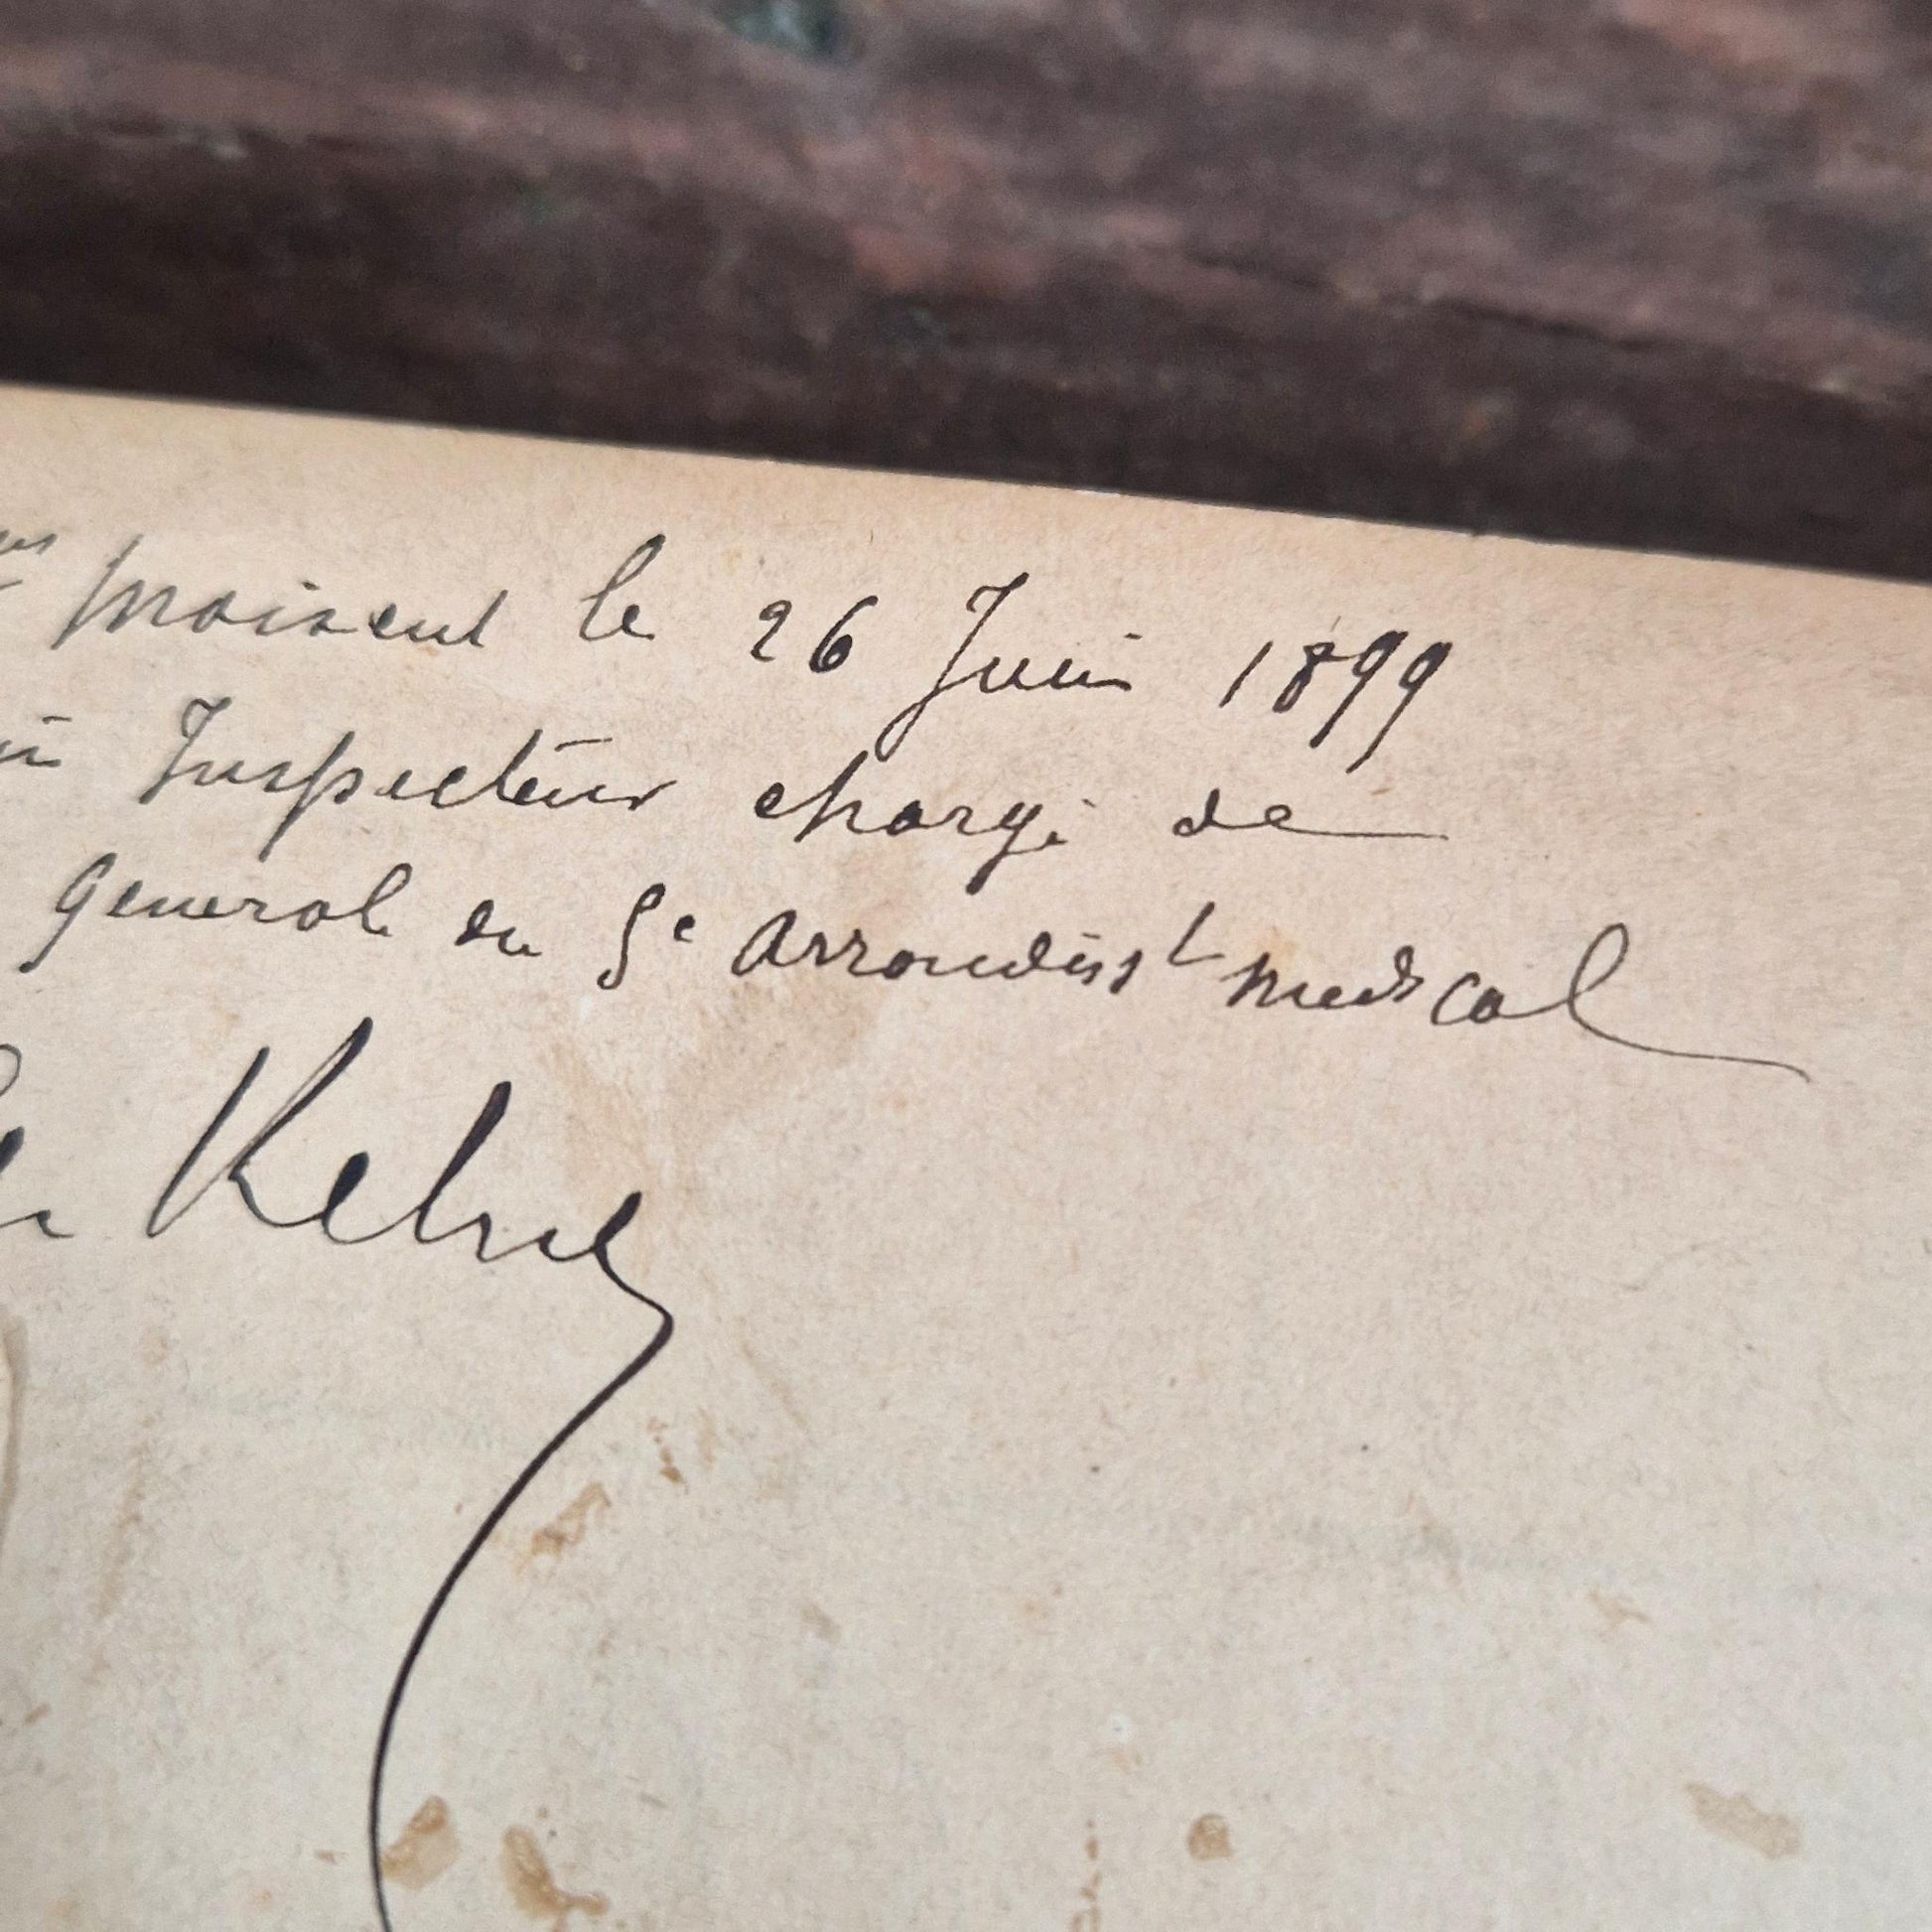 moisent le 26 Juin 1899
Inspecteur chargé de
General du 5e Arrondisst medical
Kelsch